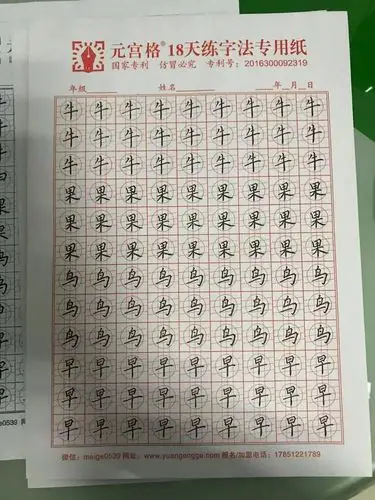 元宫格® 18天练字法专用纸
国家专利 仿冒必究 专利号：2016300092319
年级 姓名 年 月 日
牛 牛 牛 牛 牛 牛 牛 牛 牛
牛 牛 牛 牛 牛 牛 牛 牛 牛
牛 牛 牛 牛 牛 牛 牛 牛 牛
果 果 果 果 果 果 果 果 果
果 果 果 果 果 果 果 果 果
果 果 果 果 果 果 果 果 果
乌 乌 乌 乌 乌 乌 乌 乌 乌
乌 乌 乌 乌 乌 乌 乌 乌 乌
乌 乌 乌 乌 乌 乌 乌 乌 乌
早 早 早 早 早 早 早 早 早
早 早 早 早 早 早 早 早 早
早 早 早 早 早 早 早 早 早
微信：meige0539 网址：www.yuangongge.com 报名/加盟电话：17851221789